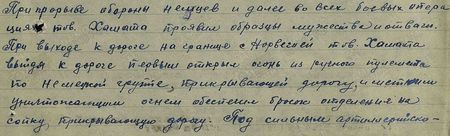 При прорыве обороны немцев и далее во всех боевых опера
циях тов. Хамата проявил образцы мужества и отваги.
При выходе к дороге на границе с Норвегией тов. Хамата
выйдя к дороге первым открыл огонь из ручного пулемета
по немецкой группе, прикрывающей дорогу, и метким
уничтожающим огнем обеспечил бросок отделения на
сопку, прикрывающую дорогу. Под сильным артиллерийско-